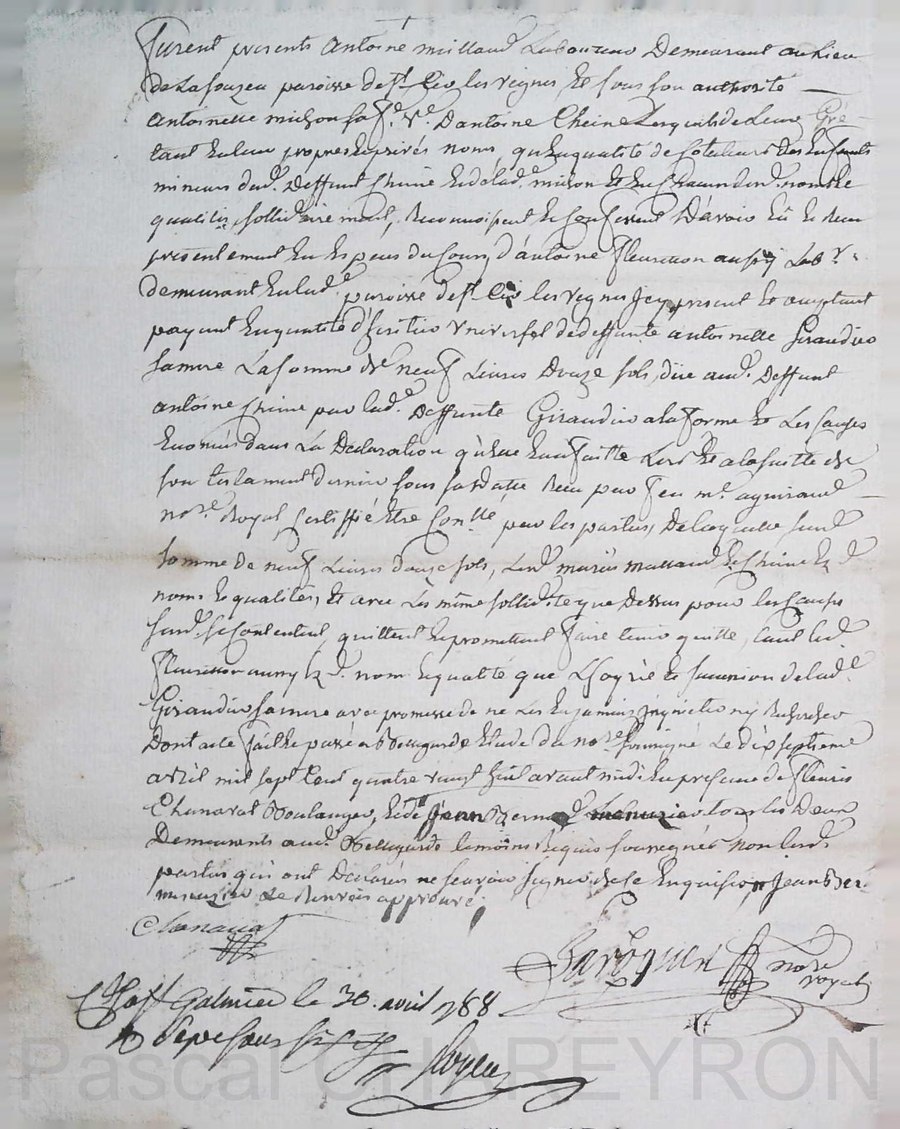 furent presents antoine millaud Laboureur Demeurant au lieu
de La fouzea paroisse de st. Cir les vignes, Et sous son authorité
antoinette michon sa fe. ve. D'antoine Cheine Lesquels de Leur Gré
tant En leur propres & privés noms, qu'En qualité de tuteurs des Enfants
mineurs dud. Deffunt Cheine Et de lad. michon Et En Chacun dud. noms Et
qualités, sollidairement, Reconnoissent Et Confessent D'avoir Eû Et Reçu
présentement En Espèces du Cours, d'antoine fleurisson aussy Labr.
demeurant En lad. paroisse de st. Cir les vignes Icy present Et acceptant
payant En qualité d'héritier universel de deffunte antoinette Giraudier
sa mere La somme de neuf Livres Douze sols, düe aud. Deffunt
antoine Cheine par lad. Deffunte Giraudier a la forme Et Les Causes
Enoncés dans La Declaration qu'Elle En a faitte Lors Et a la suitte de
son testament dernier sous sa datte Reçu par feu me. aguiraud
nore. Royal, Certiffié Etre Conlle. par les parties, De laquelle susd.
somme de neuf Livres douze sols, Lesd. mariés millaud Et Cheine Ezd.
noms Et qualités, Et avec La même sollidité que Dessus pour les Causes
susd. se Contentent, quittent Et promettent faire tenir quitte, tant led.
fleurisson aussy Ezd. nom & qualité que L'hoyrie Et succession de lad.
Giraudier sa mere avec promesse de ne Les En jamais Inquietter ny Rechercher
Dont acte fait Et passé a Bellegarde Etude du nore. soussigné Le dix septieme
avril mil sept Cent quatre vingt huit avant midi En presence de fleurie
Chanavat Boulanger, Et de Jean menuzier tous les Deux
Demeurants aud. Bellegarde temoins Requis soussignés non lesd.
parties qui ont Declarés ne sçavoir signer de ce Enquis Jean
menuzier de Renvois approuvé
Chanavat
nore royal
Clle a st Galmier le 30. avril 1788.
R sept sous six d